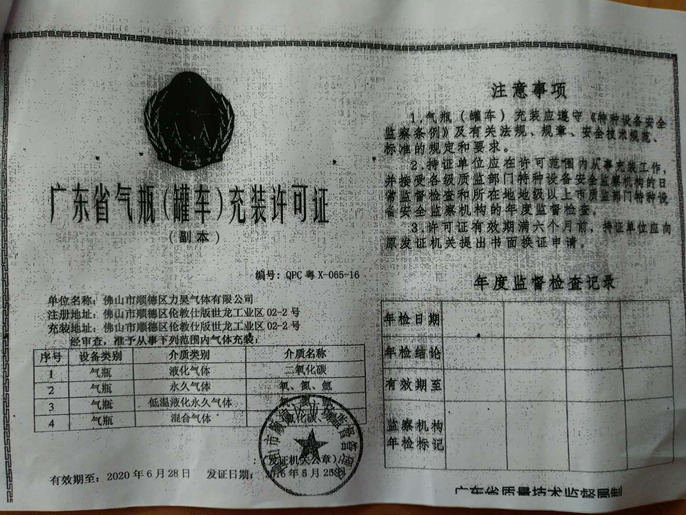 广东省气瓶(罐车)充装许可证
(副本)
编号: QPC 粤 X-065-16
单位名称: 佛山市顺德区力昊气体有限公司
注册地址: 佛山市顺德区伦教仕版世龙工业区 02-2 号
充装地址: 佛山市顺德区伦教仕版世龙工业区 02-2 号
经审查, 准予从事下列范围内气体充装:
序号 设备类别 介质类别 介质名称
1 气瓶 液化气体 二氧化碳
2 气瓶 永久气体 氧、氮、氩
3 气瓶 低温液化永久气体 氧、氮、氩
4 气瓶 混合气体
(发证机关公章)
有效期至: 2020 年 6 月 28 日 发证日期:
注意事项
1.气瓶(罐车)充装应遵守《特种设备安全
监察条例》及有关法规、规章、安全技术规范、
标准的规定和要求。
2.持证单位应在许可范围内从事充装工作,
并接受各级质监部门特种设备安全监察机构的日
常监督检查和所在地地级以上市质监部门特种设
备安全监察机构的年度监督检查。
3.许可证有效期满六个月前,持证单位应向
原发证机关提出书面换证申请。
年度监督检查记录
年检日期
年检结论
有效期至
监察机构
年检标记
广东省质量技术监督局制